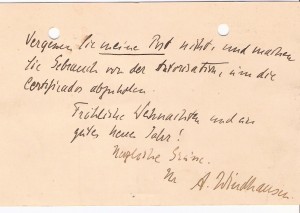 Vergessen Sie meine Post nicht, und machen
Sie Gebrauch von der Autorisation, um die
Certificados abzuholen.
Fröhliche Weihnachten und ein
gutes neues Jahr!
Herzliche Grüsse
A. Windhausen.